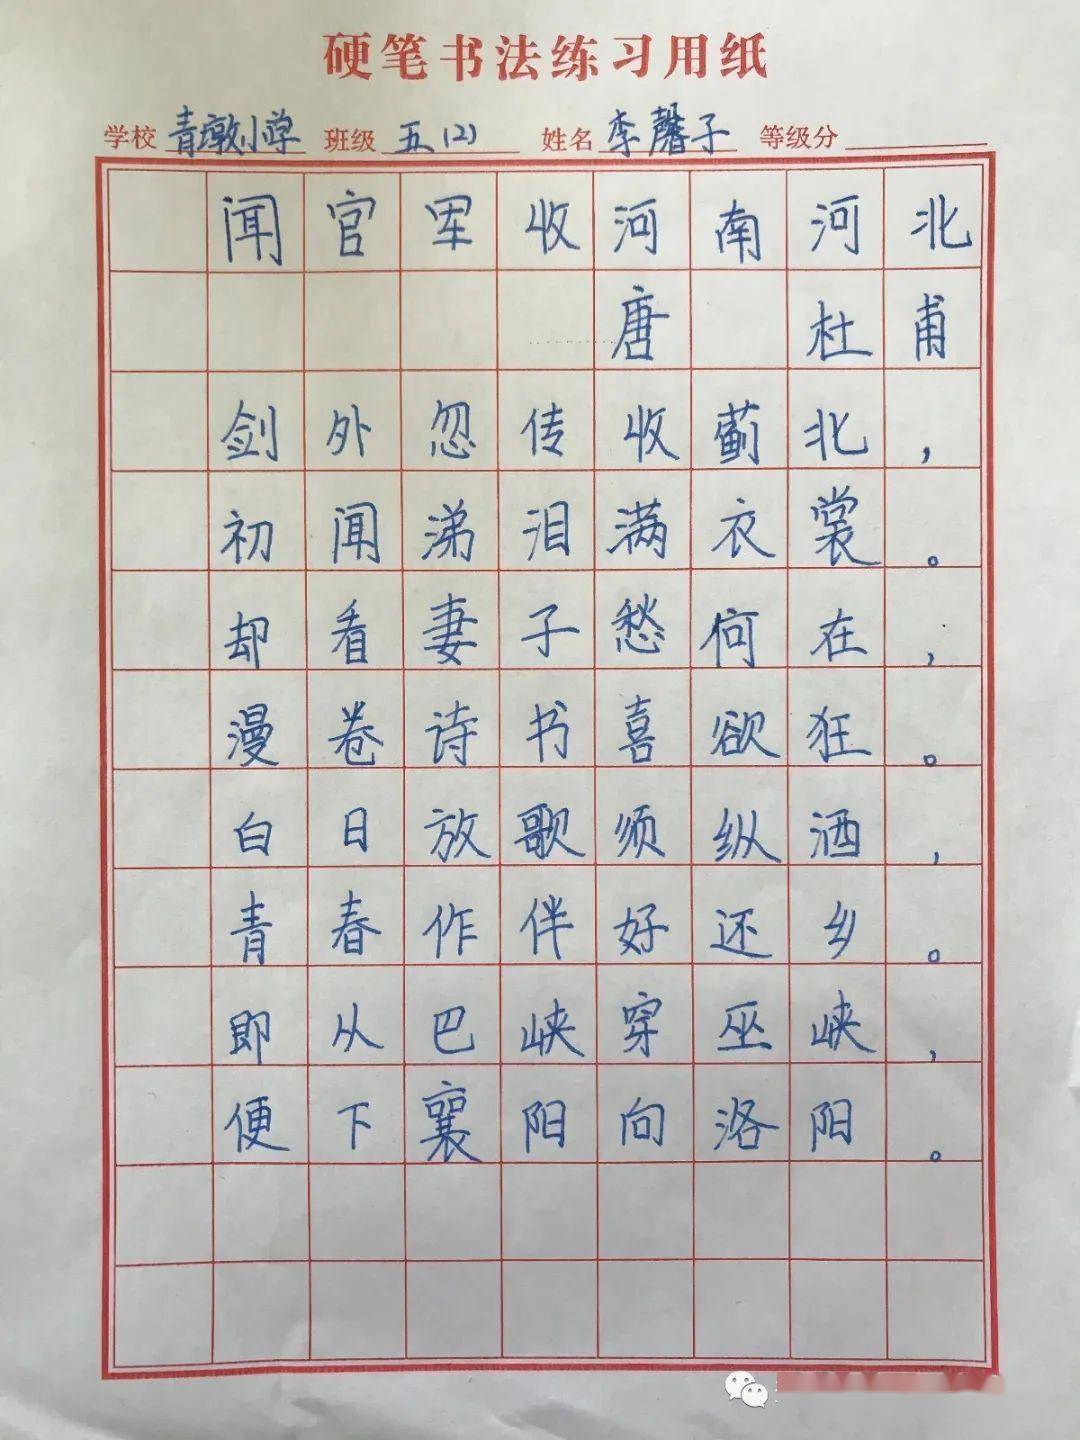 硬笔书法练习用纸
学校 青墩小学 班级 五(2) 姓名 李馨子 等级分
闻官军收河南河北
唐 杜甫
剑外忽传收蓟北，
初闻涕泪满衣裳。
却看妻子愁何在，
漫卷诗书喜欲狂。
白日放歌须纵酒，
青春作伴好还乡。
即从巴峡穿巫峡，
便下襄阳向洛阳。